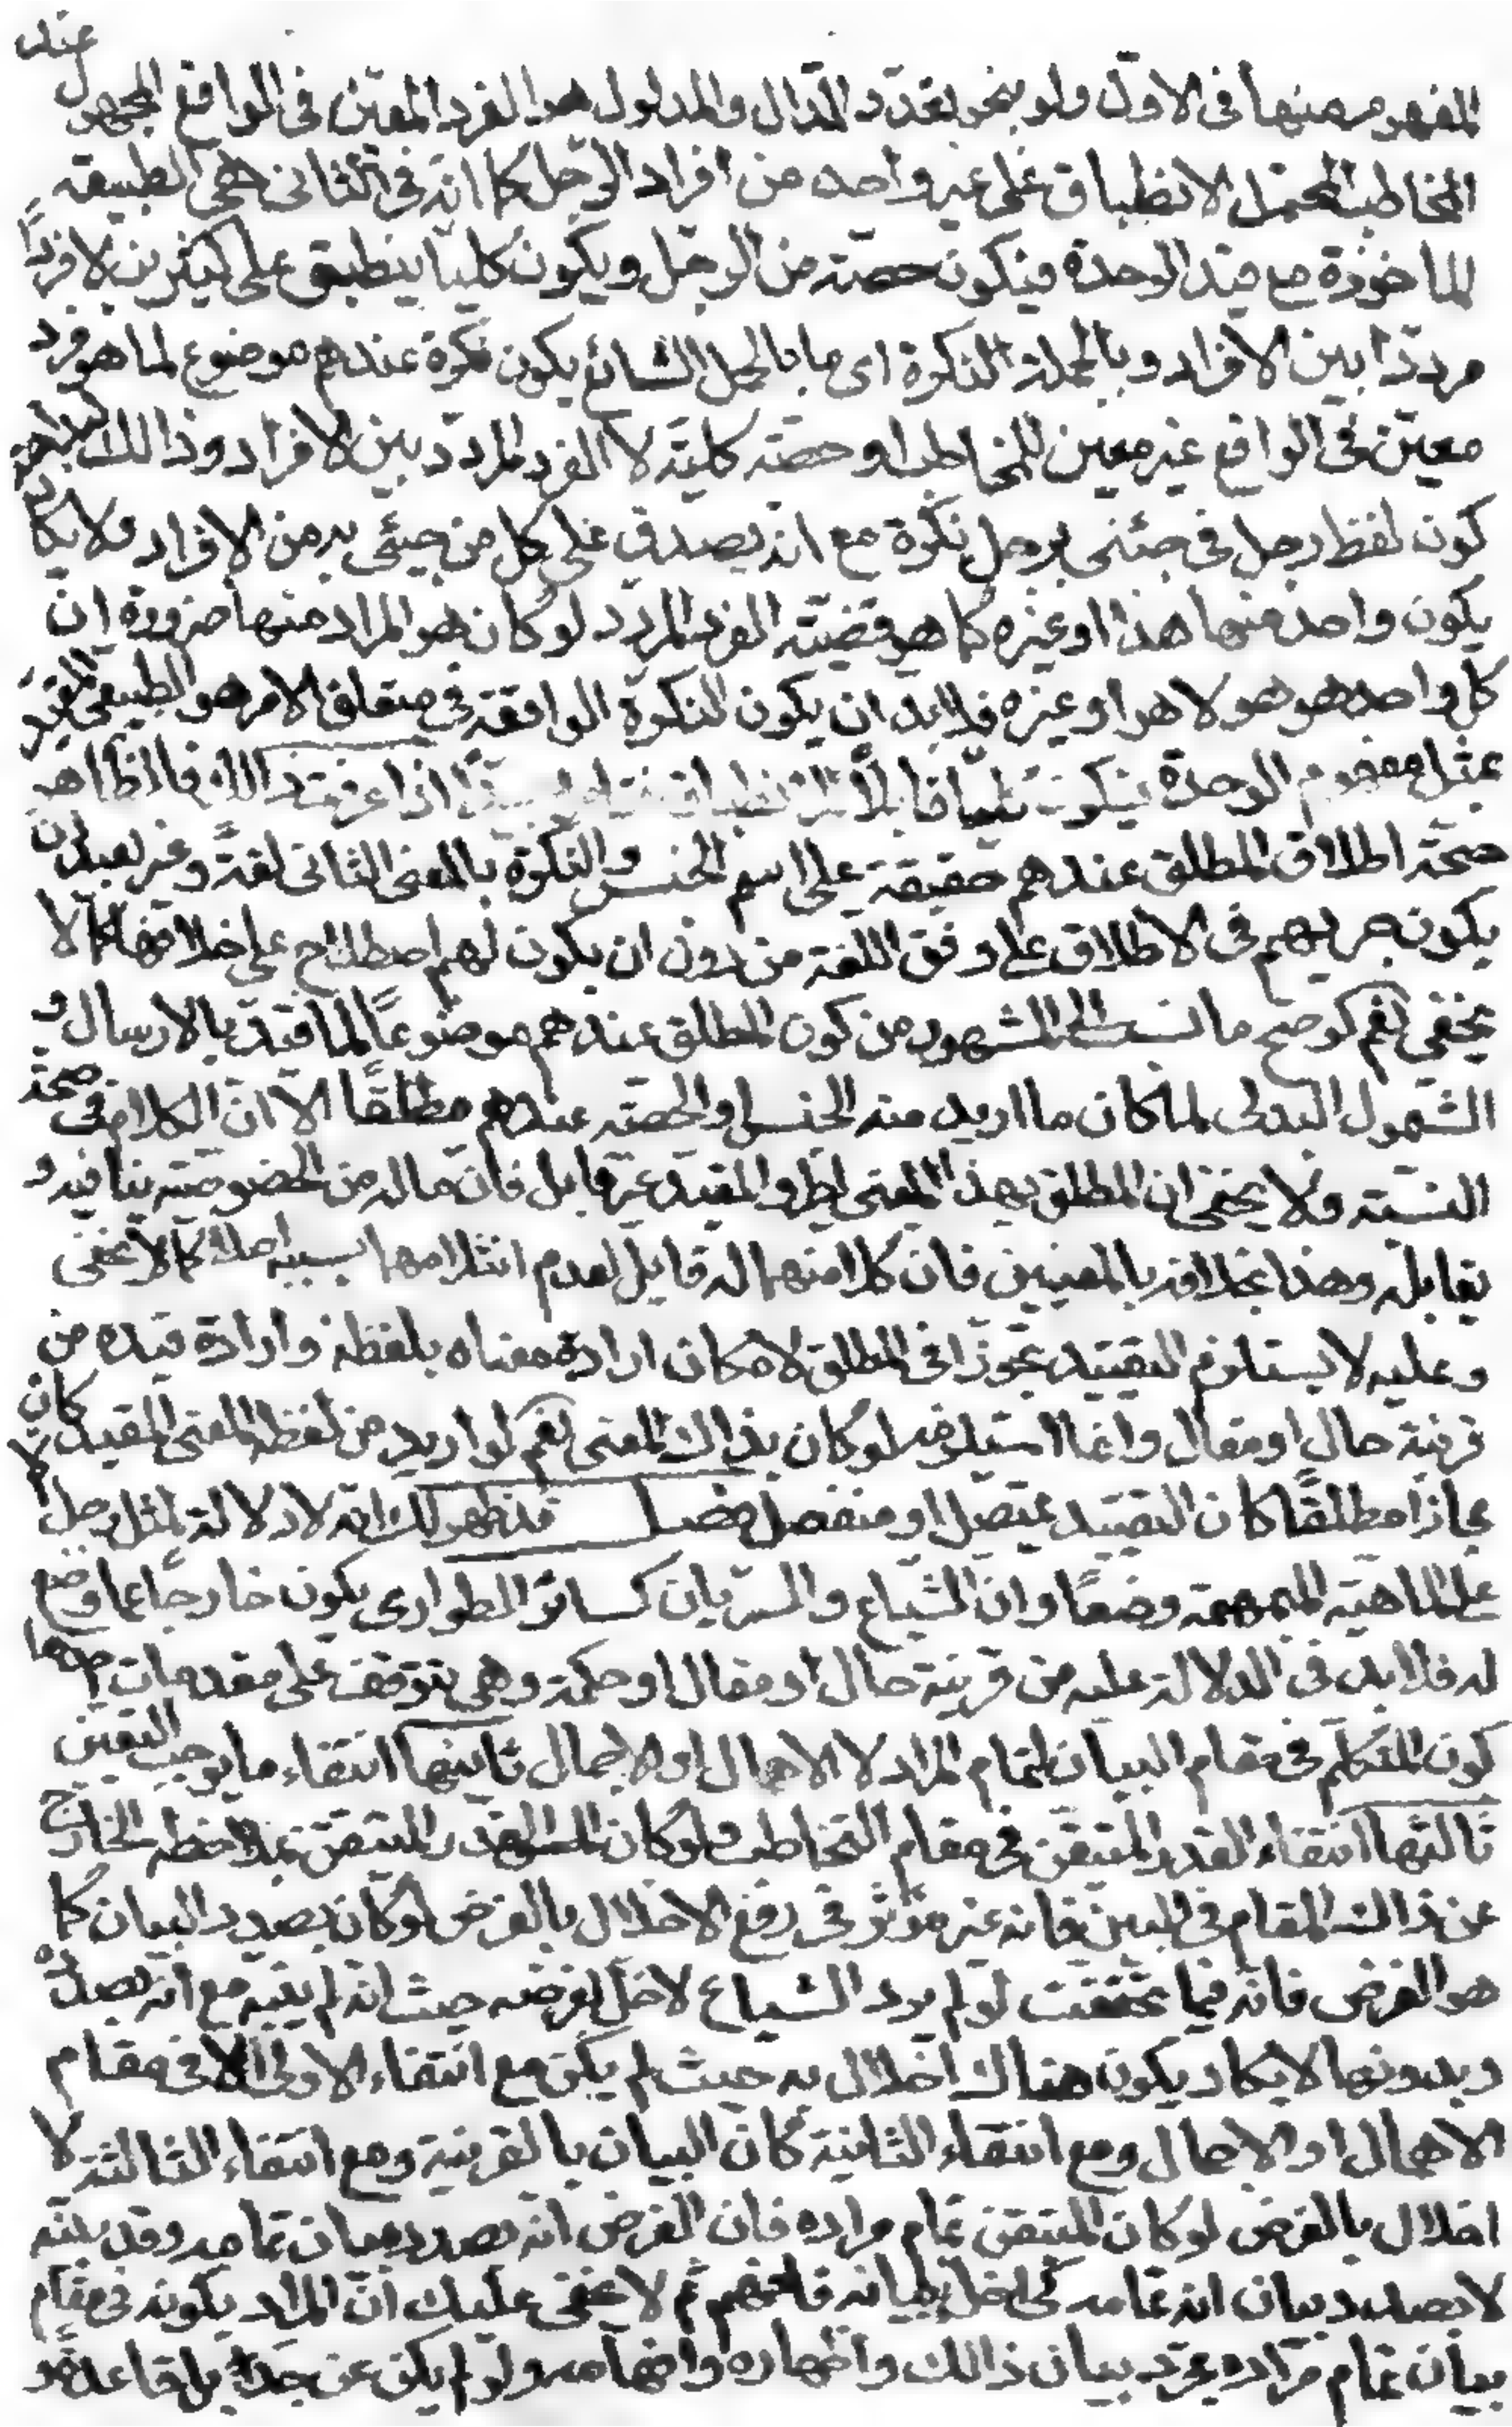 المفهوم منها فى الاول ولو بنحو تعدد الدال والمدلول هو الفرد المعين فى الواقع المجهول عند
المخاطب المحتمل الانطباق على غير واحد من افراد الرجل كما انه فى الثانى هى الطبيعة
الماخوذة مع قيد الوحدة فيكون حصة من الرجل ويكون كليا ينطبق على كثيرين لا فردا
مرددا بين الافراد وبالجملة النكرة اى ما بالحمل الشائع يكون نكرة عندهم موضوع لما هو فرد
معين فى الواقع غير معين للمخاطب او حصة كلية لا الفرد المردد بين الافراد وذالك لبداهة
كون لفظ رجل فى جئنى برجل نكرة مع انه يصدق على كل من جيئى به من الافراد ولا يكاد
يكون واحد منها هذا او غيره كما هو قضية الفرد المردد لو كان هو المراد منها ضرورة ان
كل واحد هو هو لا هو او غيره فلا بد ان يكون النكرة الواقعة فى متعلق الامر هو الطبيعى المقيد
بمثل مفهوم الوحدة فيكون كليا قابلا للانطباق اذا عرفت ذالك فالظاهر
صحة اطلاق المطلق عندهم حقيقة على اسم الجنس والنكرة بالمعنى الثانى لغة وغير بعيد ان
يكون جريهم فى الاطلاق على وفق اللغة من دون ان يكون لهم اصطلاح على خلافها كما لا
يخفى نعم لو صح ما نسب الى المشهور من كون المطلق عندهم موضوعا لما قيد بالارسال و
الشمول البدلى لما كان ما اريد منه الجنس او الحصة عندهم مطلقا الا ان الكلام فى صحة
النسبة ولا يخفى ان المطلق بهذا المعنى لطرو المقيد غير قابل فان ماله من الخصوصية ينافيه و
يقابله وهذا بخلافه بالمعنيين فان كلا منهما له قابل لعدم انثلامهما بسببه اصلا كما لا يخفى
وعليه لا يستلزم التقييد تجوزا فى المطلق لامكان ارادة معناه بلفظه وارادة قيده من
قرينة حال او مقال وانما استلزمه لو كان بذاك المعنى نعم لو اريد من لفظه المعنى المقيد كان
مجازا مطلقا كان التقييد بمتصل او منفصل فصل قد ظهر لك انه لا دلالة لمثل رجل الا
على الماهية المبهمة وضعا وان الشياع والسريان كسائر الطوارى يكون خارجا عما وضع
له فلا بد فى الدلالة عليه من قرينة حال او مقال او حكمة وهى يتوقف على مقدمات احدها
كون المتكلم فى مقام البيان لتمام المراد لا الاهمال او الاجمال ثانيتها انتفاء ما يوجب التعيين
ثالثها انتفاء القدر المتيقن فى مقام التخاطب ولو كان القدر المتيقن بملاحظة الخارج
عن ذاك المقام فى البين فانه غير مؤثر فى رفع الاخلال بالغرض لو كان بصدد البيان كما
هو الفرض فانه فيما تحققت لو لم يرد الشياع لاخل بغرضه حيث انه لم يبينه مع انه بصدده
وبدونها لا يكاد يكون هناك اخلال به حيث لم يكن مع انتفاء الاولى الا فى مقام
الاهمال او الاجمال ومع انتفاء الثانية كان البيان بالقرينة ومع انتفاء الثالثة لا
اخلال بالغرض لو كان المتيقن تمام مراده فان الفرض انه بصدد بيان تمامه وقد بينه
لا بصدد بيان انه تمامه كى اخل ببيانه فافهم ثم لا يخفى عليك ان المراد بكونه فى مقام
بيان تمام مراده مجرد بيان ذالك واظهاره وافهامه ولو لم يكن عن جد بل قاعدة و